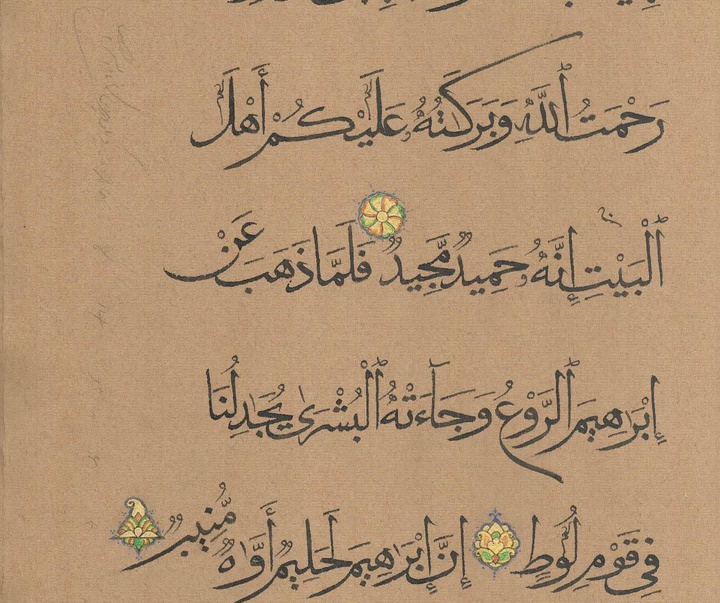 رَحْمَتُ ٱللَّهِ وَبَرَكَٰتُهُۥ عَلَيْكُمْ أَهْلَ
ٱلْبَيْتِ إِنَّهُۥ حَمِيدٌ مَّجِيدٌ فَلَمَّا ذَهَبَ عَنْ
إِبْرَٰهِيمَ ٱلرَّوْعُ وَجَآءَتْهُ ٱلْبُشْرَىٰ يُجَٰدِلُنَا
فِى قَوْمِ لُوطٍ إِنَّ إِبْرَٰهِيمَ لَحَلِيمٌ أَوَّٰهٌ مُّنِيبٌ